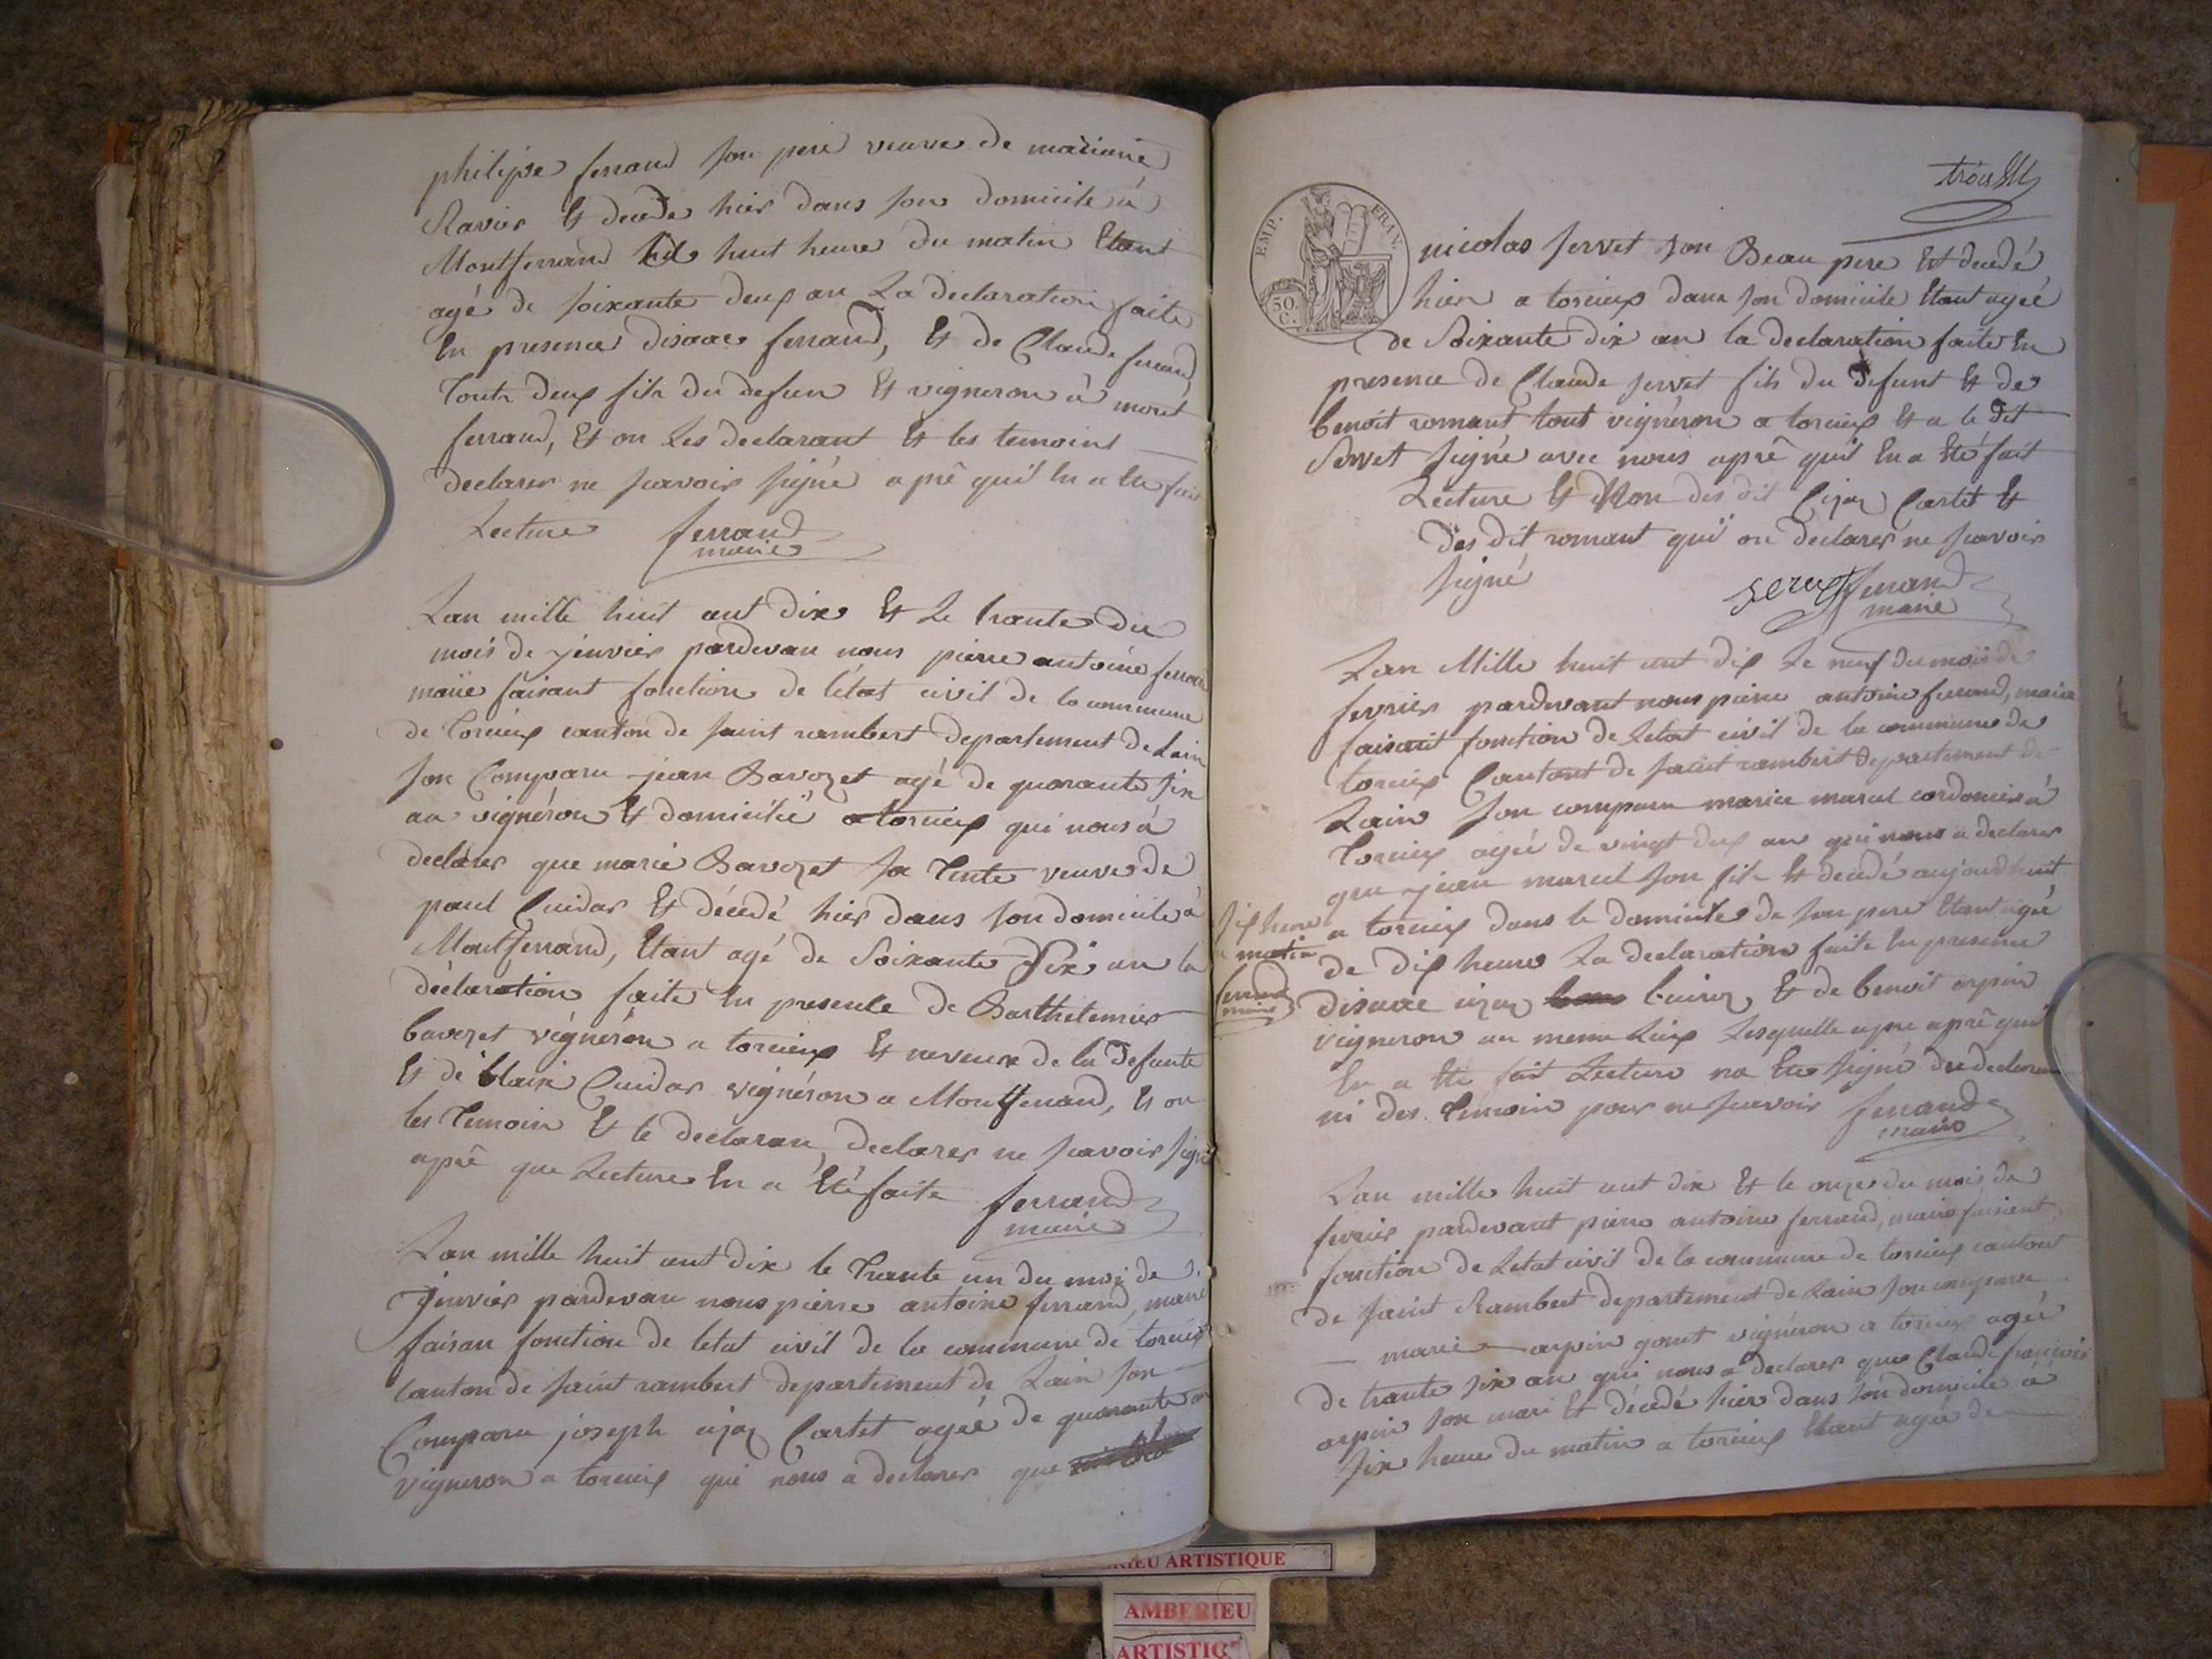 philipe ferrand son pere veuve de marianne
Ravier Et decedé hier dans son domicile a
Montferrand huit heure du matin Etant
agé de soixante deux an La declaration faite
En presence disaac ferrand, Et de Claude ferrand
Tout deux fils du defun Et vigneron à mont
ferrand, Et on Les declarant Et les temoins
declarer ne scavoir signé apré quil En a Ete fait
Lecture ferrand
maire
Lan mille huit cent dix Et Le trante du
mois de jenvier pardevan nous pierre antoine ferrand
maire faisant fonction de l'état civil de la commune
de Torcieux canton de saint rambert departement de Lain
son Comparu jean Bavozet agé de quarante six
an vignéron Et domicilié a torcieux qui nous à
declarer que marie Bavozet sa Tente veuve de
paul Cuidar Et décedé hier dans son domicile à
Montferrand, Etant agé de Soixante Six an la
déclaration faite En presente de Barthelemier
bavozet vignéron a torcieux Et neveux de la defunte
Et de blaise Cuidar vignéron a Montferrand, Et on
les Temoin Et le declaran declarer ne scavoir signé
apré que Lecture En a Eté faite ferrand
maire
Lan mille huit cent dix le Trante un du moi de
jenvier pardevan nous pierre antoine ferrand, maire
faisan fonction de letat civil de la commune de torcieux
Canton de saint rambert departement de Lain son
Comparu joseph cizoz Cartet agée de quarante an
vigneron a torcieux qui nous a declarer que
trois
EMP. FRAN.
50 C.
nicolas servet son Beau pere Et decedé
hier a torcieux dans son domicile Etant agée
de Soixante dix an la declaration faite En
presence de Claude servet fils du defunt Et de
benoit romant tout vignéron a torcieux Et a le dit
Servet signé avec nous apré quil En a Eté fait
Lecture Et Non des dit Cizoz Cartet Et
des dit romant qui on declarer ne scavoir
signé servet ferrand
maire
Lan Mille huit cent dix Le neuf du mois de
fevrier pardevant nous pierre antoine ferrand, maire
faisant fonction de Letat civil de la commune de
torcieux Cantont de saint rambert departement de
Lain son comparu marice marcel cordonier à
Torcieux agée de vingt deux an qui nous a declarer
que jean marcel son fils Et decedé aujourdhuit
six heure a torcieux dans le domicile de son pere Etant agée
matin de dix heure La declaration faite En presence
ferrand maire disaac cizoz buiroz Et de benoit arpin
vigneron au meme Lieux Lesquelle apré quil
En a Eté fait Lecture na Ete signé du declarant
ni des Temoin pour ne scavoir ferrand
maire
Lan mille huit cent dix Et le onze du mois de
fevrier pardevant pierre antoine ferrand, maire faisient
fonction de Letat civil de la commune de torcieux cantont
de saint Rambert departement de Lain son comparu
marie arpin gonet vignéron a torcieux agée
de trante six an qui nous a declarer que Claude françois
arpin son mari Et décedé hier dans son domicile à
six heure du matin a torcieux Etant agée de
ARTISTIQUE
AMBERIEU
ARTISTIQ